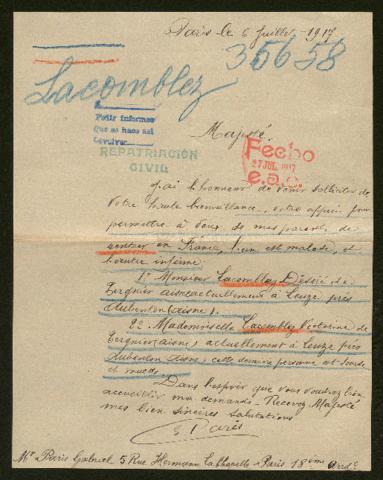 Paris le 6 Juillet 1917
35658
Lacomblez
Pedir informes
que se hace así
Majesté.
REPATRIACIÓN
CIVIL
Fecho
27 JUL. 1917
J'ai l'honneur de venir solliciter de
Votre haute bienveillance, votre appui pour
permettre à deux de mes parents de
rentrer en France, l'un est malade, et
l'autre infirme.
1º Monsieur Lacomblez Désiré de
Tergnier aisne actuellement à Leuze près
d'Aubenton (Aisne).
2º Mademoiselle Lacomblez de
Tergnier (aisne) actuellement à Leuze près
Aubenton Aisne; cette dernière personne est sourde
et muette.
Dans l'espoir que vous voudrez bien
accueillir ma demande. Recevez Majesté
mes bien sincères salutations
G Paris
Mr Paris Gabriel 5 Rue Hermann Lachapelle - Paris 18ème Arrdt